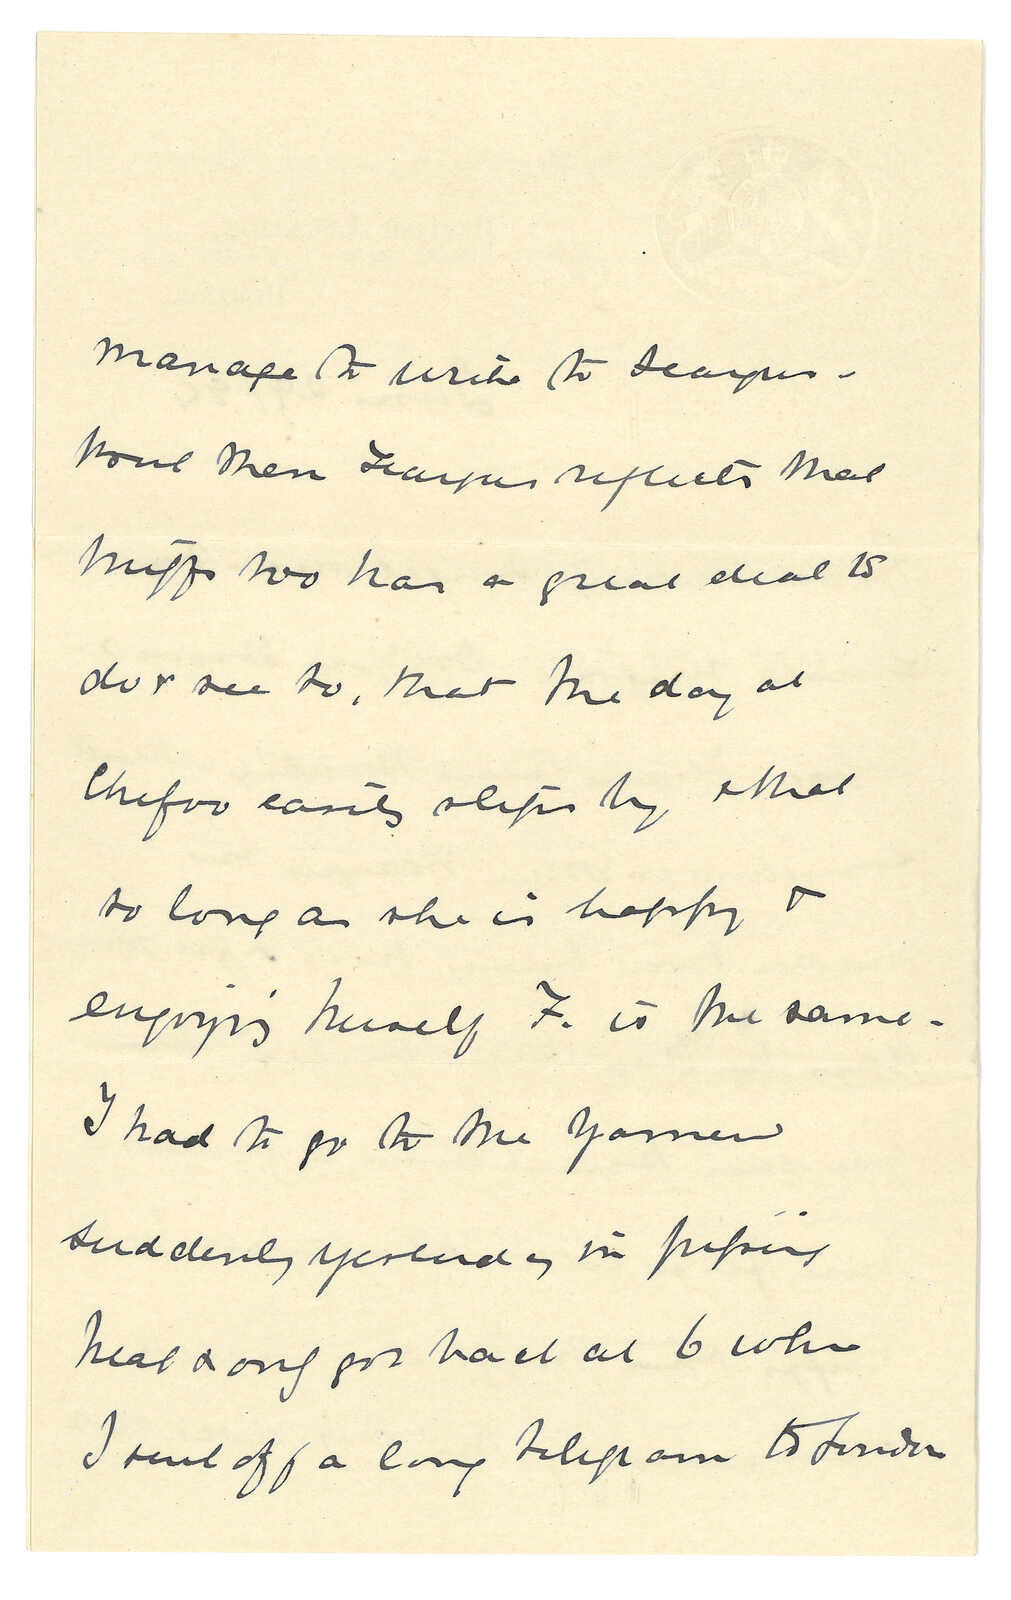 manage to write to Feargus -
but then Feargus reflects that
Muffs too has a great deal to
do & see to, that the day at
Chefoo easily slips by & that
so long as she is happy &
enjoying herself F. is the same -
I had to go to the Yamen
suddenly yesterday in
heat & only got back at 6 when
I sent off a long telegram to London